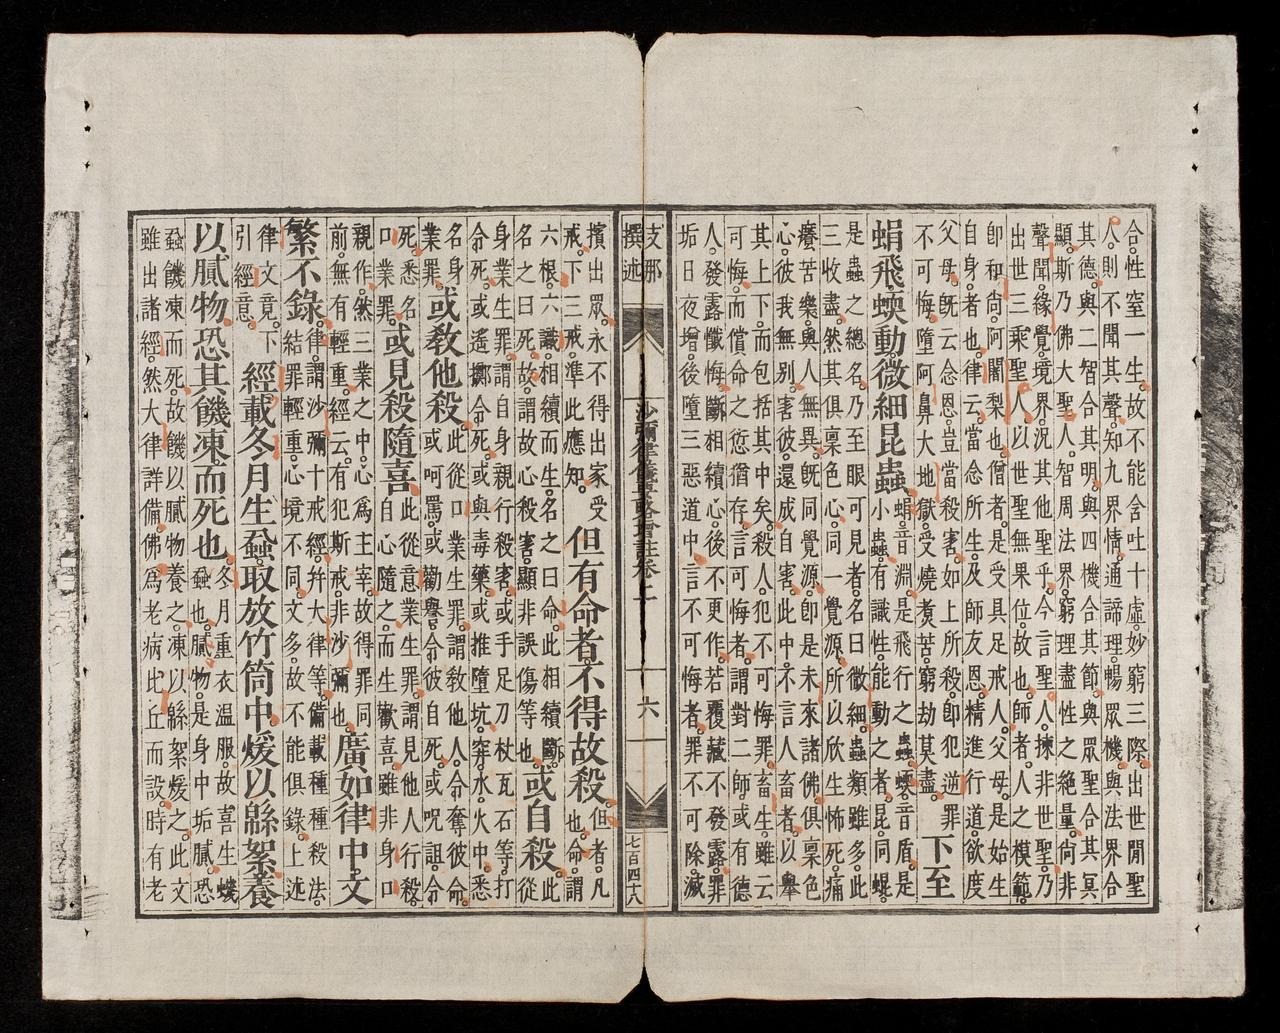 合。性窒一生。故不能含吐十虛。妙窮三際。出世間聖
人。則不聞其聲。知九界情。通諦理。暢眾機。與法界合
其德。與二智合其明。與四機合其節。與眾聖合其冥
顯。斯乃佛大聖人。智周法界。窮理盡性之絕量。尚非
聲聞緣覺境界。況其他聖乎。今言聖人。揀非世聖。乃
出世三乘聖人。以世聖無果位故也。師者。人之模範。
即和尚。阿闍梨也。僧者。是受具足戒人。父母是始生
自身者也。律云。當念所生。及師友恩。精進行道。欲度
父母。旣云念恩。豈當殺害。如上所殺。即犯逆罪
不可悔。墮阿鼻大地獄。受燒煑苦。窮劫莫盡。
下至
蜎飛蝡動。微細昆蟲。
蜎音淵。是飛行之蟲。蝡音盾。是
小蟲。有識性能動之者。昆同蜫。
是蟲之總名。乃至眼可見者。名曰微細。蟲類雖多。此
三收盡。然其俱稟色心。同一覺源。所以欣生怖死。痛
癢苦樂。與人無異。旣同覺源。即是未來諸佛。俱稟色
心。彼我無別。害彼還成自害。此中不言人畜者。以舉
其上下。而包括其中矣。殺人。犯不可悔罪。畜生。雖云
可悔。而償命之愆猶存。言可悔者。謂對二師。或有德
人。發露懺悔。斷相續心。後不更作。若覆藏不發露。罪
垢日夜增。後墮三惡道中。言不可悔者。罪不可除滅
支那
撰述
沙彌律儀要略增註卷上
六
七百四十八
擯出眾。永不得出家受
戒。下三戒。準此應知。
但有命者。不得故殺。
但者。凡
也。命謂
六根六識。相續而生。名之曰命。此相續斷。
名之曰死。故謂故心殺害。顯非誤傷等也。
或自殺。
此從
身業生罪。謂自身親行殺害。或手足刀杖瓦石等。打
令死。或遙擲令死。或與毒藥。或推墮坑穽水火中。悉
名身
業罪。
或教他殺。
此從口業生罪。謂教他人。令奪彼命。
或呵罵。或勸譽。令彼自死。或呪詛令
死。悉名
口業罪。
或見殺隨喜。
此從意業生罪。謂見他人行殺。
自心隨之。而生歡喜。雖非身口
親作。然三業之中。心為主宰。故得罪同
前。無有輕重。經云。有犯斯戒。非沙彌也。
廣如律中。文
繁不錄。
律。謂沙彌十戒經。幷大律等。備載種種殺法。
結罪輕重。心境不同。文多。故不能俱錄。上述
律文竟。下
引經意。
經載冬月生蝨。取放竹筒中。煖以緜絮。養
以膩物。恐其饑凍而死也。
冬月重衣溫服。故喜生蟣
蝨也。膩物。是身中垢膩。恐
蝨饑凍而死。故饑以膩物養之。凍以緜絮煖之。此文
雖出諸經。然大律詳備。佛為老病比丘而設。時有老